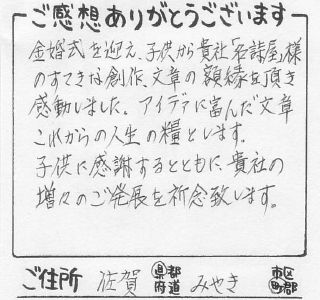 ご感想ありがとうございます
金婚式を迎え、子供から貴社「名詩屋」様
のすてきな創作、文章の額縁を頂き
感動しました。アイデアに富んだ文章
これからの人生の糧とします。
子供に感謝するとともに、貴社の
増々のご発展を祈念致します。
ご住所 佐賀 都道府県 みやき 市区町郡